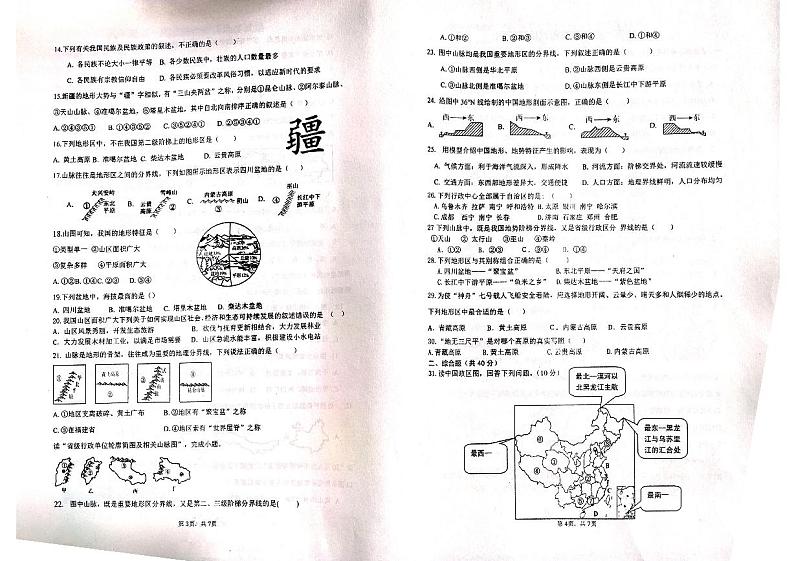 14.下列有关我国民族及民族政策的叙述，不正确的是（    ）
A. 各民族不论大小一律平等  B. 各少数民族中，壮族的人口数量最多
C. 各民族有宗教信仰自由  D. 各民族必须要改革风俗习惯，以适应新时代的要求
15.新疆的地形大势与“疆”字相似，有“三山夹两盆”之称，分别是①昆仑山脉、②阿尔泰山脉、
③天山山脉、④准噶尔盆地，⑤塔里木盆地，其中自北向南排序正确的叙述是（    ）
A.②④③⑤①  B.①④③⑤②  C.③⑤②④①  D.②⑤③④①
疆
16.下列地形区中，不在我国第二级阶梯上的地形区是（    ）
A. 黄土高原 B. 准噶尔盆地 C. 柴达木盆地  D. 云贵高原
17.山脉往往是地形区之间的分界线，下列如图所示地形区表示四川盆地的是（    ）
A. ① 大兴安岭 东北平原  B. 云贵高原 雪峰山 ②  C. 内蒙古高原 阴山 ③  D. ④ 巫山 长江中下游平原
18.由图可知，我国的地形特征是（    ）
①类型单一  ②山区面积广大
③复杂多样  ④平原面积广大
A.①③ B.①④ C.②③ D.②④
19.下列盆地中，海拔最高的是（）
A. 四川盆地  B. 准噶尔盆地  C. 塔里木盆地  D. 柴达木盆地
20. 我国山区面积广大下列关于如何实现山区社会、经济和生态可持续发展的叙述错误的是（    ）
A. 山区风景秀丽，开发生态旅游  B. 砍伐与抚育更新相结合，大力发展林业
C. 大力发展木材加工业，以满足市场需要  D. 山区急流水能丰富，积极建设小水电站
21. 山脉是地形的骨架，往往成为重要的地理分界线，下列说法正确的是（    ）
A.①地区支离破碎、黄土广布  B.②地区有“聚宝盆”之称
C.③在福建省  D.④地区素有“世界屋脊”之称
读“省级行政单位轮廓简图及相关山脉图”，完成小题。
22. 图中山脉，既是重要地形区分界线，又是第二、三级阶梯分界线的是(    )
第 3页，共 7页
A.①和②  B.②和③  C.③和④  D.①和④
23. 图中山脉均是我国重要地形区的分界线，下列叙述正确的是（    ）
A.①山脉西侧是华北平原  B.②山脉西侧是云贵高原
C.③山脉北侧是准噶尔盆地  D.④山脉东侧是长江中下游平原
24. 沿图中 36°N 线绘制的中国地形剖面示意图，正确的是（    ）
A. 西→东  B. 西→东  C. 西→东  D. 西→东
25. 用模型介绍中国地形、地势特征产生的影响，表现为（    ）
A. 气候方面：利于海洋气流深入，形成降水  B. 河流方面：阶梯交界处，河流流速较缓慢
C. 交通方面：东西部地形差异大，交通便捷  D. 人口方面：地理界线鲜明，人口分布均匀
26. 下列行政中心全部属于自治区的是：（    ）
A.乌鲁木齐 拉萨 南宁 呼和浩特 B.太原 银川 南宁 哈尔滨
C.成都 西宁 南宁 长春  D.济南 石家庄 郑州 合肥
27 下列山脉中，既是我国地势阶梯分界线，又是省级行政区分界线的是（    ）
①天山  ② 太行山  ③巫山  ④秦岭
A. ①②  B. ②③  C. ③④  D. ①④
28. 下列地形区与其别称组合正确的是（    ）
A.四川盆地——“聚宝盆”  B.东北平原——“天府之国”
C.长江中下游平原——“鱼米之乡”  D.柴达木盆地——“紫色盆地”
29. 为使“神舟”七号载人飞船安全着陆，应选择地形开阔、云量少、晴天多和人烟稀少的地点。
下列地形区中最合适的是（    ）
A. 青藏高原  B. 黄土高原  C. 内蒙古高原  D. 云贵高原
30. “地无三尺平”是对哪个高原的真实写照（    ）
A.青藏高原  B.黄土高原  C.云贵高原  D.内蒙古高原
二、综合题（共 40 分）
31. 读中国政区图，回答下列问题。（10 分）
最北一漠河以
北黑龙江主航
最东一黑龙
江与乌苏里
江的汇合处
最西一
最南一
第 4页，共 7页